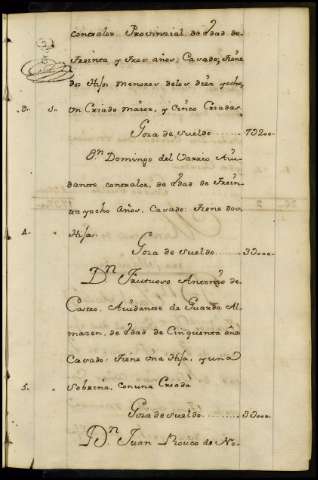 contralor Provincial de Edad de
Treinta y tres años, Casado; tiene
dos Hijos menores de los diez y ocho,
3. 5. un Criado mayor, y Cinco Criadas
Goza de sueldo ..... 7D200..
Dn. Domingo del Barrio Aiu-
dante contralor, de Edad de Trein-
ta y ocho Años, Casado: tiene dos
4. Hijas
Goza de sueldo ..... 3D000..
Dn. Fructuoso Antonio de
Castro, Aiudante de Guarda Al-
mazen, de Edad de Cinquenta años
Casado: tiene Una Hija, y una
5. Sobrina, con una Criada
Goza de sueldo ..... 3D000..
Dn. Juan Rouco de No-